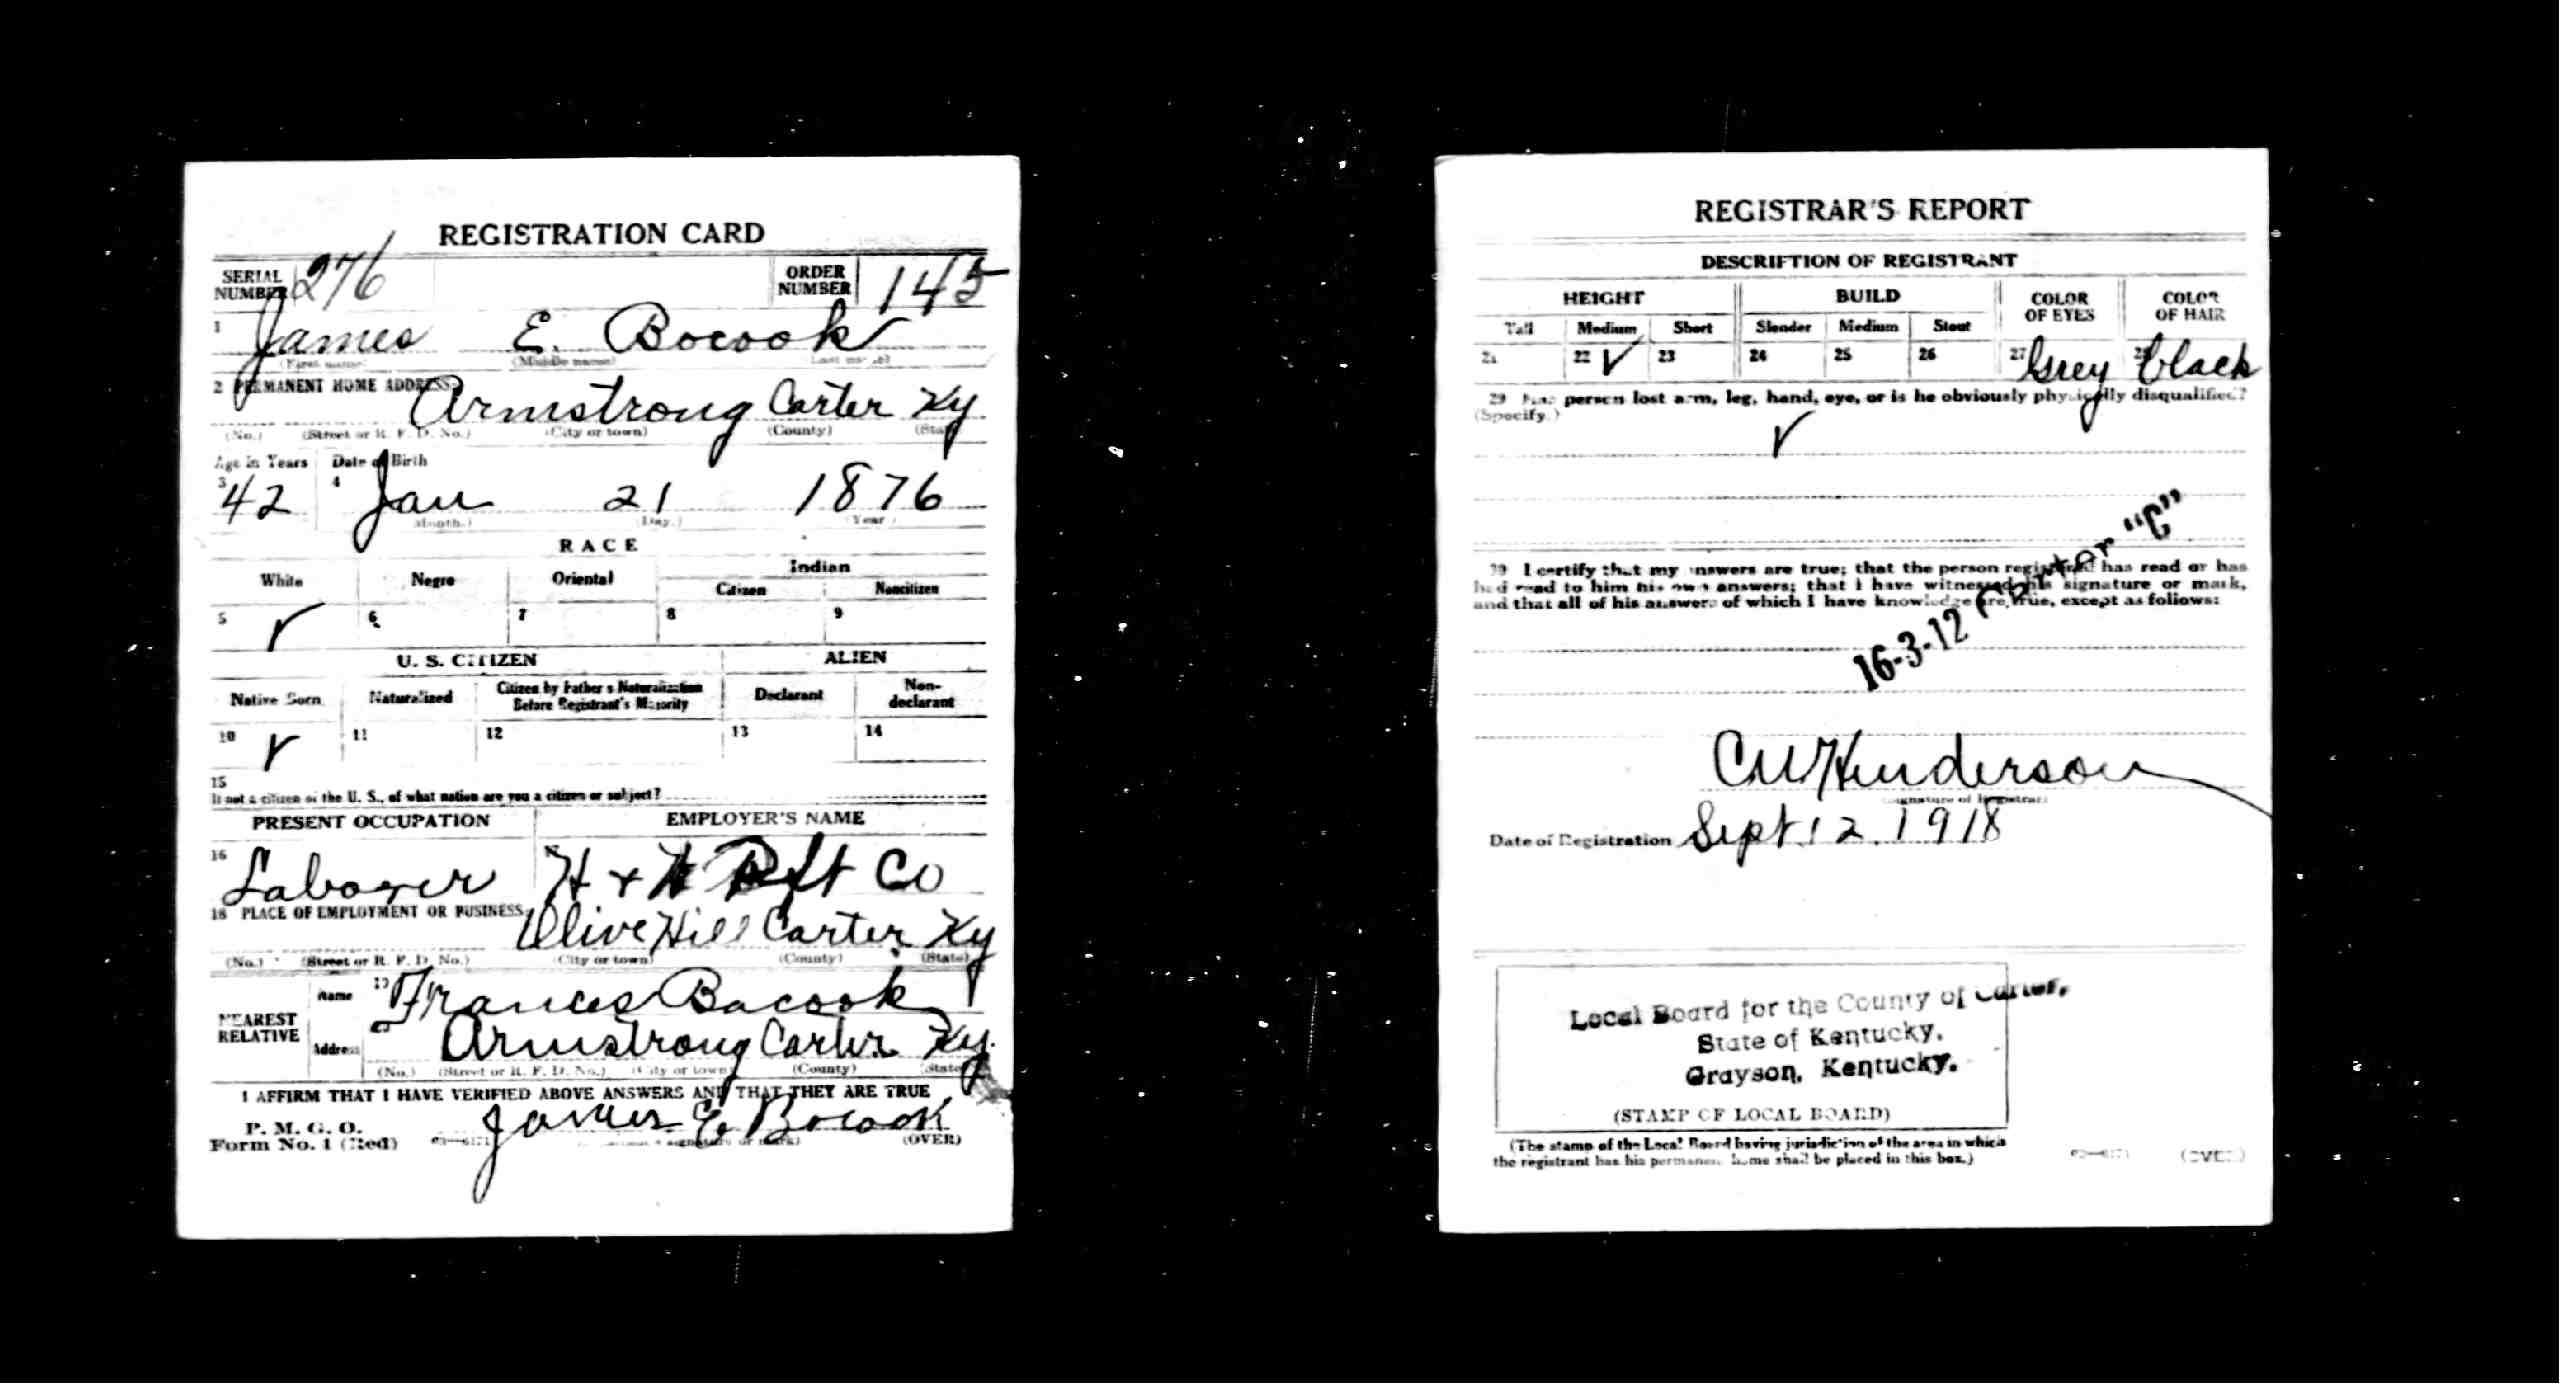 REGISTRATION CARD
SERIAL NUMBER 276 ORDER NUMBER 145
1 James E. Bocook
(First name) (Middle name) (Last name)
2 PERMANENT HOME ADDRESS:
Armstrong Carter Ky
(No.) (Street or R. F. D. No.) (City or town) (County) (State)
Age in Years Date of Birth
3 42 4 Jan 21 1876
(Month.) (Day.) (Year.)
RACE
White Negro Oriental Indian
Citizen Noncitizen
5 ✓ 6 7 8 9
U. S. CITIZEN ALIEN
Native Born Naturalized Citizen by Father's Naturalization Before Registrant's Majority Declarant Non-declarant
10 ✓ 11 12 13 14
15
If not a citizen of the U. S., of what nation are you a citizen or subject?
PRESENT OCCUPATION EMPLOYER'S NAME
16 Laborer H + W Co
18 PLACE OF EMPLOYMENT OR BUSINESS:
Olive Hill Carter Ky
(No.) (Street or R. F. D. No.) (City or town) (County) (State)
NEAREST RELATIVE
Name 19 Frances Bacook
Address 20 Armstrong Carter Ky.
(No.) (Street or R. F. D. No.) (City or town) (County) (State)
I AFFIRM THAT I HAVE VERIFIED ABOVE ANSWERS AND THAT THEY ARE TRUE
P. M. G. O.
Form No. 1 (Red) James E. Bocook (OVER)
REGISTRAR'S REPORT
DESCRIPTION OF REGISTRANT
HEIGHT BUILD COLOR OF EYES COLOR OF HAIR
Tall Medium Short Slender Medium Stout
21 22 ✓ 23 24 25 26 27 Grey 28 black
29 Has person lost arm, leg, hand, eye, or is he obviously physically disqualified?
(Specify.)
✓
30 I certify that my answers are true; that the person registered has read or has
had read to him his own answers; that I have witnessed his signature or mark,
and that all of his answers of which I have knowledge are true, except as follows:
16-3-12 Carter "C"
C W Henderson
(Signature of Registrar)
Date of Registration Sept 12. 1918
Local Board for the County of Carter,
State of Kentucky,
Grayson, Kentucky.
(STAMP OF LOCAL BOARD)
(The stamp of the Local Board having jurisdiction of the area in which
the registrant has his permanent home shall be placed in this box.)
(OVER)